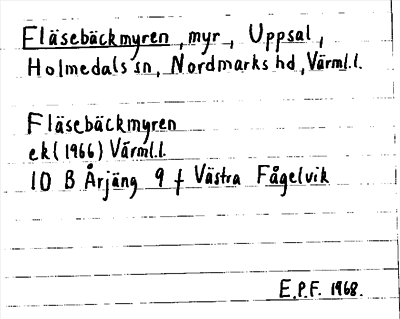 Fläsebäckmyren, myr, Uppsal,
Holmedals sn, Nordmarks hd, Värml.l.
Fläsebäckmyren
ek (1966) Värml.l.
10 B Årjäng 9 f Västra Fågelvik
E.P.F. 1968.